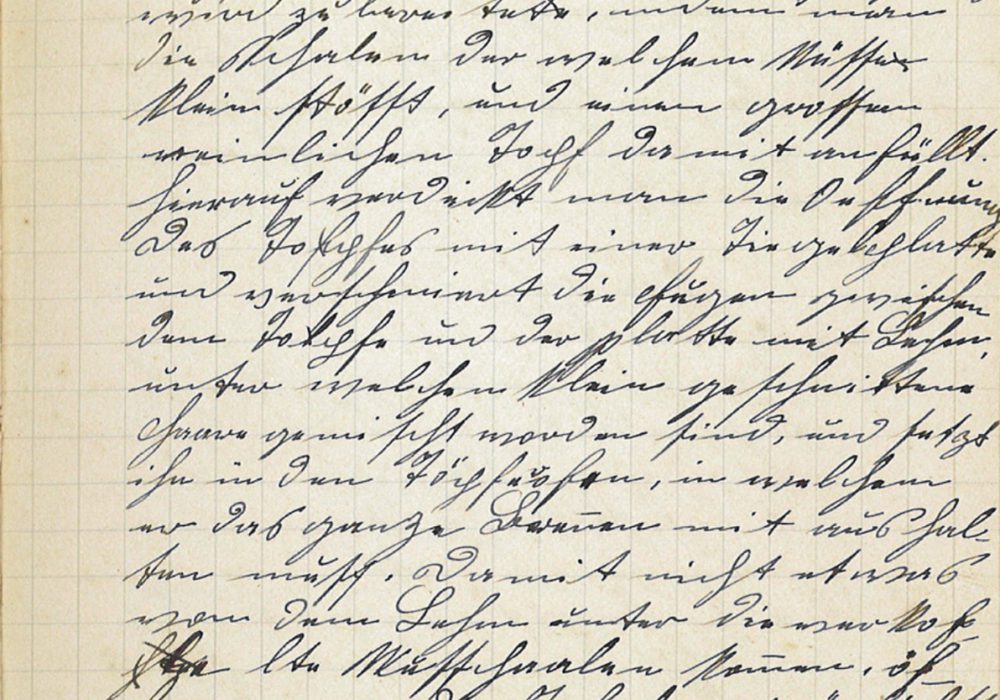 wird zubereitete, indem man
die Schalen der welschen Nüsse
klein stößt, und einen grossen
reinlichen Topf damit anfüllt.
hierauf verdeckt man die Oeffnung
des Topfes mit einer Ziegelplatte
und verschmiert die Fugen zwischen
dem Topfe und der platte mit Lehm,
unter welchem klein geschnittene
Haare gemischt worden sind, und setzt
ihn in den Töpferofen, in welchem
er das ganze Brennen mit aushal-
ten muß. Damit nicht etwas
von dem Lehm unter die verkoh-
lte Nussschaalen kommen, öf-